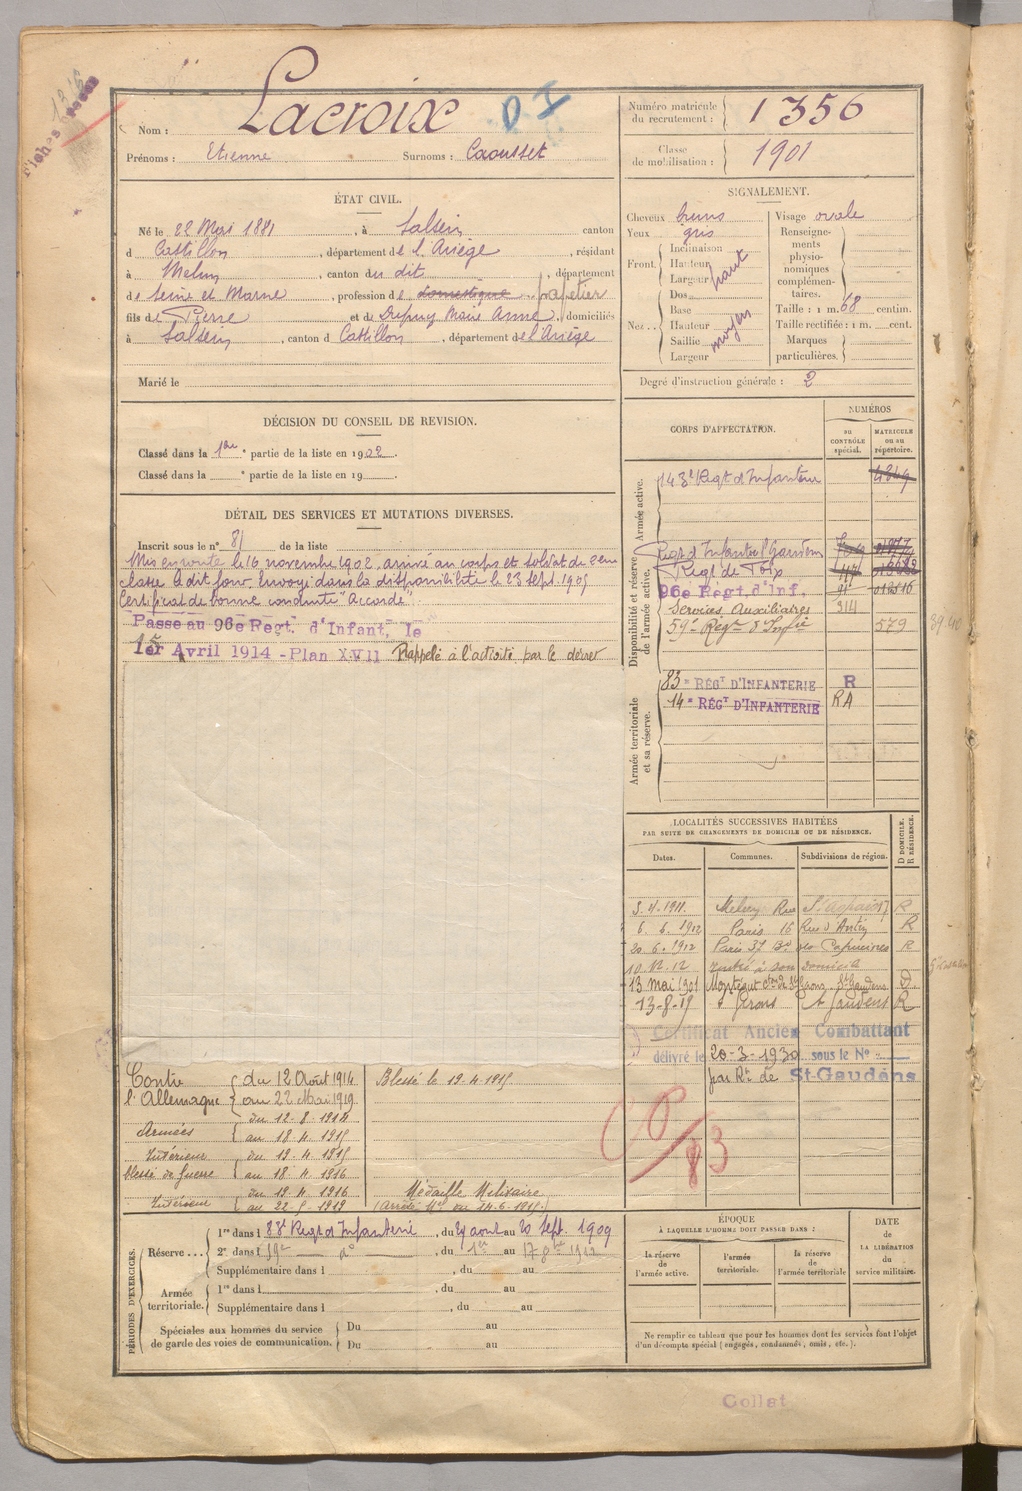 Nom : Lacroix
D I
Prénoms : Etienne Surnoms : Caousset
Numéro matricule du recrutement : 1356
Classe de mobilisation : 1901
ÉTAT CIVIL.
Né le 22 Mai 1881, à Salsein canton
d Castillon, département de l'Ariège, résidant
à Melun, canton du dit, département
de Seine et Marne, profession de domestique papetier
fils de Pierre et de Dupuy Marie Anne, domiciliés
à Salsein, canton d Castillon, département de l'Ariège
Marié le
SIGNALEMENT.
Cheveux bruns
Yeux gris
Front. Inclinaison
Hauteur haut
Largeur
Nez.. Dos
Base
Hauteur moyen
Saillie
Largeur
Visage ovale
Renseignements physionomiques complémentaires.
Taille : 1 m. 68 centim.
Taille rectifiée : 1 m. cent.
Marques particulières.
Degré d'instruction générale : 2
DÉCISION DU CONSEIL DE REVISION.
Classé dans la 1ère partie de la liste en 1902.
Classé dans la partie de la liste en 19
DÉTAIL DES SERVICES ET MUTATIONS DIVERSES.
Inscrit sous le n° 81 de la liste
Mis en route le 16 novembre 1902, arrivé au corps et soldat de 2eme
classe le dit jour. Envoyé dans la disponibilité le 23 sept. 1905
Certificat de bonne conduite "Accordé".
Passé au 96e Regt. d'Infant. le
1er Avril 1914 - Plan XVII Rappelé à l'activité par le décret
CORPS D'AFFECTATION.
NUMÉROS
au CONTRÔLE spécial.
MATRICULE ou au répertoire.
Armée active.
143e Regt d'Infanterie 4349
Disponibilité et réserve de l'armée active.
Regt d'Infanterie
Regt de Foix
96e Regt. d'Inf.
Services Auxiliaires 214
59e Regt d'Infie 579
Armée territoriale et sa réserve.
83e RÉGT D'INFANTERIE R
14e RÉGT D'INFANTERIE RA
LOCALITÉS SUCCESSIVES HABITÉES
PAR SUITE DE CHANGEMENTS DE DOMICILE OU DE RÉSIDENCE.
Dates. Communes. Subdivisions de région. D DOMICILE. R RÉSIDENCE.
3.4.1911. Melun Rue St Aspais R
6.6.1912 Paris 16 Rue d'Antin R
20.6.1912 Paris 37 Bd des Capucines R
10.12.12 rentré à son domicile
13 mai 1901 St Gaudens D
13-8-19 St Girons St Gaudens R
Certificat Ancien Combattant
délivré le 20-3-1930 sous le N°
par Rt de St-Gaudens
CP/83
Contre l'Allemagne du 12 Août 1914 au 22 Mai 1919 Blessé le 19.4.1915
Armées du 12.8.1914 au 18.4.1915
Intérieur du 19.4.1915
blessé de Guerre au 18.4.1916
Intérieur du 19.4.1916 au 22.5.1919 Médaille Militaire
(Arrêté Mel du 14.6.1915)
PÉRIODES D'EXERCICES.
Réserve ... 1re dans l 88e Regt d'Infanterie, du 29 août au 20 Sept. 1909
2e dans l 59e do, du 1er au 17 8bre 1912
Supplémentaire dans l, du au
Armée territoriale. 1re dans l, du au
Supplémentaire dans l, du au
Spéciales aux hommes du service de garde des voies de communication. Du au
Du au
ÉPOQUE
À LAQUELLE L'HOMME DOIT PASSER DANS :
la réserve de l'armée active.
l'armée territoriale.
la réserve de l'armée territoriale
DATE DE LA LIBÉRATION du service militaire.
Ne remplir ce tableau que pour les hommes dont les services font l'objet
d'un décompte spécial (engagés, condamnés, omis, etc.).
Collat